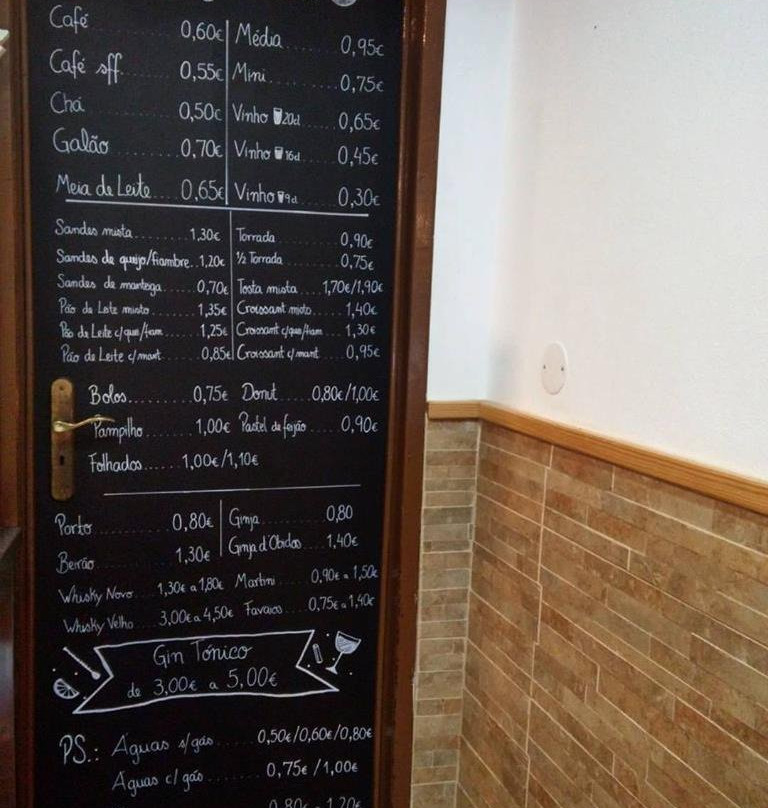 Café 0,60€
Café sff. 0,55€
Chá 0,50€
Galão 0,70€
Meia de Leite 0,65€
Média 0,95€
Mini 0,75€
Vinho 20cl 0,65€
Vinho 16cl 0,45€
Vinho 9cl 0,30€
Sandes mista 1,30€
Sandes de queijo/fiambre 1,20€
Sandes de manteiga 0,70€
Pão de Leite misto 1,35€
Pão de Leite c/que/fiam 1,25€
Pão de Leite c/mant 0,85€
Torrada 0,90€
½ Torrada 0,75€
Tosta mista 1,70€/1,90€
Croissant misto 1,40€
Croissant c/que/fiam 1,30€
Croissant c/mant 0,95€
Bolos 0,75€
Pampilho 1,00€
Folhados 1,00€/1,10€
Donut 0,80€/1,00€
Pastel de feijão 0,90€
Porto 0,80€
Beirão 1,30€
Ginja 0,80
Ginja d'Obidos 1,40€
Whisky Novo 1,30€ a 1,80€
Whisky Velho 3,00€ a 4,50€
Martini 0,90€ a 1,50€
Favaios 0,75€ a 1,40€
Gin Tónico
de 3,00€ a 5,00€
PS.: Águas s/gás 0,50€/0,60€/0,80€
Águas c/gás 0,75€/1,00€